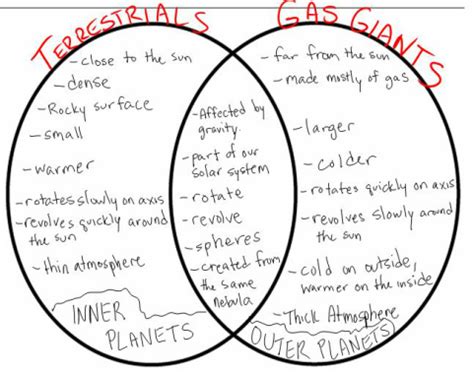 TERRESTRIALS
- close to the sun
- dense
- Rocky surface
- small
- warmer
- rotates slowly on axis
- revolves quickly around
the sun
- thin atmosphere
INNER
PLANETS
- Affected by
gravity.
- part of our
solar system
- rotate
- revolve
- spheres
- created from
the same
nebula
GAS GIANTS
- far from the sun
- made mostly of gas
- larger
- colder
- rotates quickly on axis
- revolves slowly around
the sun
- cold on outside,
warmer on the inside
- Thick Atmosphere
OUTER PLANETS